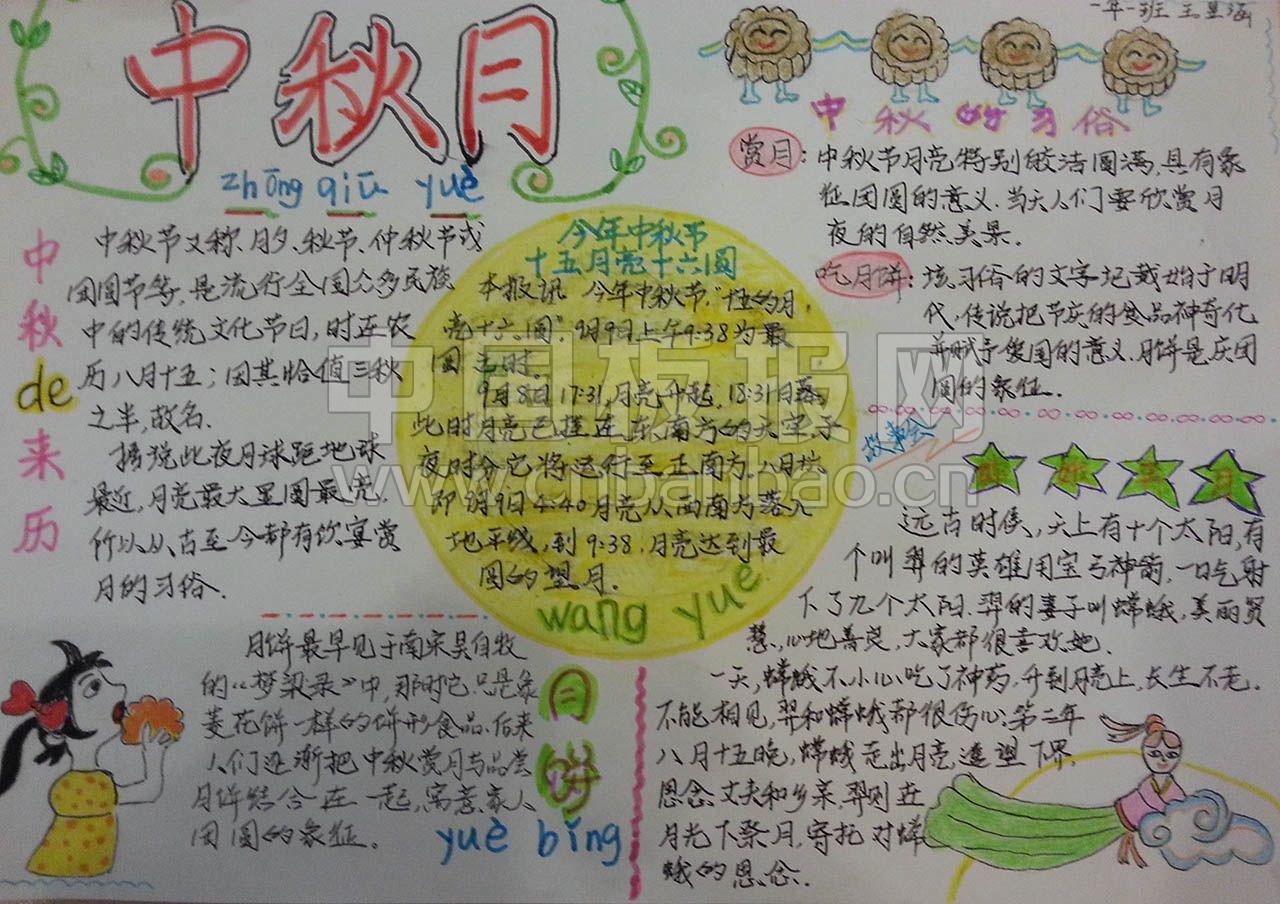 中秋月
zhōng qiū yuè
一年一班 王星涵
中秋de来历
中秋节又称月夕、秋节、仲秋节或
团圆节等,是流行全国众多民族
中的传统文化节日,时在农
历八月十五;因其恰值三秋
之半,故名.
据说此夜月球距地球
最近,月亮最大最圆最亮,
所以从古至今都有饮宴赏
月的习俗.
今年中秋节
十五月亮十六圆
本报讯 今年中秋节,"十五的月
亮十六圆".9月9日上午9:38为最
圆之时.
9月8日17:31,月亮升起,18:31日落,
此时月亮已挂在东南方的天空,子
夜时分它将运行至正南方.
即9月9日4:40月亮从西南方落入
地平线,到9:38.月亮达到最
圆的望月.
wang yue
中秋的习俗
赏月:中秋节月亮特别皎洁圆满,具有象
征团圆的意义.当天人们要欣赏月
夜的自然美景.
吃月饼:该习俗的文字记载始于明
代,传说把节庆的食品神奇化
并赋予爱国的意义.月饼是庆团
圆的象征.
故事会
远古时侯,天上有十个太阳,有
个叫羿的英雄用宝弓神箭,一口气射
下了九个太阳.羿的妻子叫嫦娥,美丽贤
慧,心地善良,大家都很喜欢她.
一天,嫦娥不小心吃了神药,升到月亮上,长生不老.
不能相见,羿和嫦娥都很伤心.第二年
八月十五晚,嫦娥走出月亮,遥望下界,
思念丈夫和乡亲,羿则在
月光下祭月,寄托对嫦
娥的思念.
月饼最早见于南宋吴自牧
的《梦梁录》中,那时它只是象
菱花饼一样的饼形食品.后来
人们逐渐把中秋赏月与品尝
月饼结合在一起,寓意家人
团圆的象征.
月饼
yuè bǐng
中国板报网
www.cnbanbao.cn